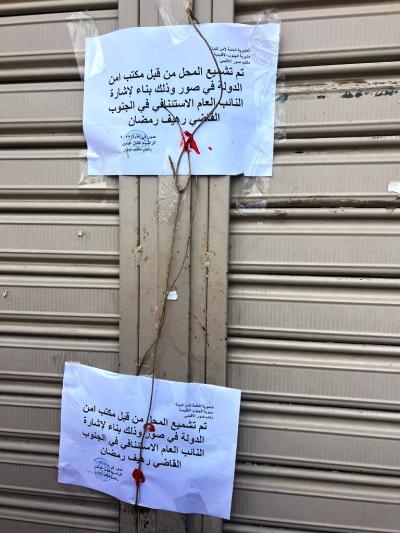 المديرية العامة لأمن الدولة
مديرية الجنوب الإقليمية
مكتب صور الإقليمي
تم تشميع المحل من قبل مكتب امن
الدولة في صور وذلك بناء لاشارة
النائب العام الاستئنافي في الجنوب
القاضي رهيف رمضان
صور في
رئيس مكتب صور
المديرية العامة لأمن الدولة
مديرية الجنوب الإقليمية
مكتب صور الإقليمي
تم تشميع المحل من قبل مكتب امن
الدولة في صور وذلك بناء لاشارة
النائب العام الاستئنافي في الجنوب
القاضي رهيف رمضان
صور في